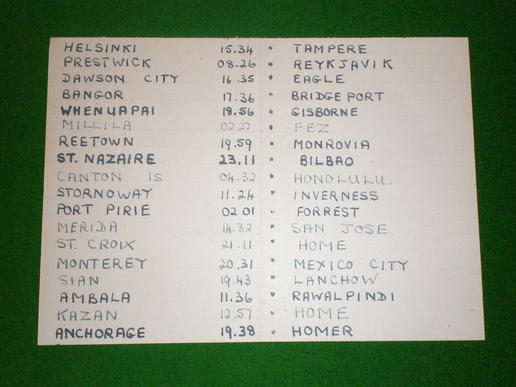 HELSINKI 15.34 TAMPERE
PRESTWICK 08.26 REYKJAVIK
DAWSON CITY 16.35 EAGLE
BANGOR 17.36 BRIDGEPORT
WHENUAPAI 18.56 GISBORNE
MILLILA 02.27 FEZ
REETOWN 19.59 MONROVIA
ST. NAZAIRE 23.11 BILBAO
CANTON IS 04.32 HONOLULU.
STORNOWAY 11.24 INVERNESS
PORT PIRIE 02 01 FORREST
MERIDA 14.32 SAN JOSE
ST. CROIX 21.11 HOME
MONTEREY 20.31 MEXICO CITY
SIAN 19.43 LANCHOW
AMBALA 11.36 RAWALPINDI
KAZAN 12.57 HOME
ANCHORAGE 19.38 HOMER